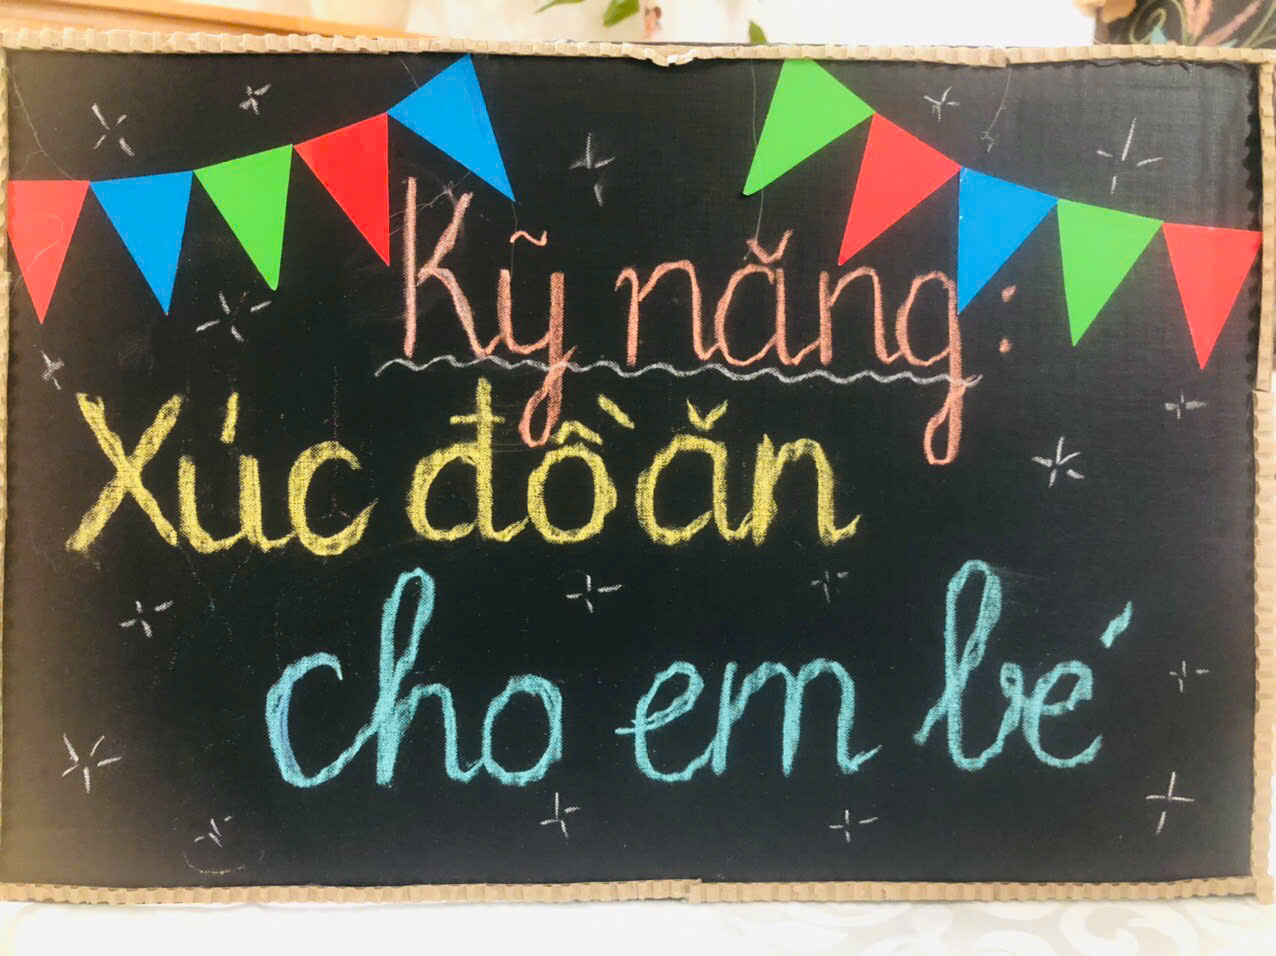 Kỹ năng:
Xúc đồ ăn
cho em bé